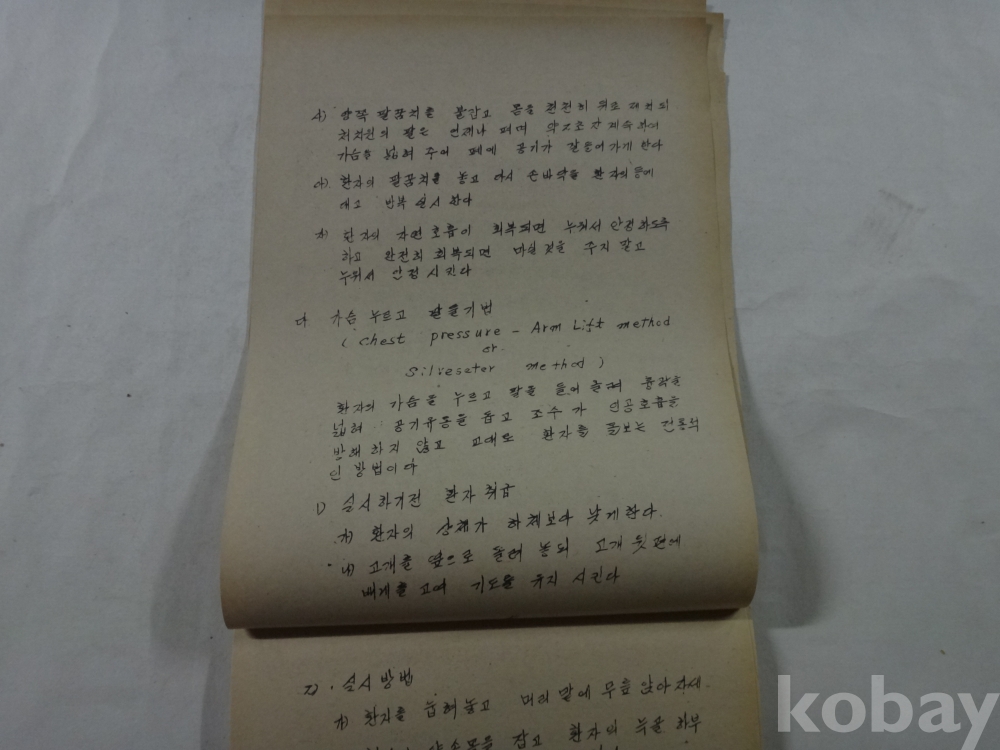 사) 양쪽 팔꿈치를 붙잡고 몸을 천천히 뒤로
처치원의 팔은 언제나 펴며 약 2초간 계속하여
가슴을 넓혀 주어 폐에 공기가 잘 들어가게 한다
아) 환자의 팔꿈치를 놓고 다시 손바닥을 환자의 등에
대고 반복 실시 한다
자) 환자의 자연호흡이 회복되면 누워서 안정하도록
하고 완전히 회복되면 마실것을 주지 말고
누워서 안정 시킨다
다. 가슴 누르고 팔들기법
( Chest pressure - Arm Lift method
or.
Silveseter method )
환자의 가슴을 누르고 팔을 들어 올려 흉곽을
넓혀 공기유통을 돕고 조수가 인공호흡을
방해 하지 않고 교대로 환자를 돌보는 전통적
인 방법이다
1) 실시하기전 환자 취급
가) 환자의 상체가 하체보다 낮게한다.
나) 고개를 옆으로 돌려 놓되 고개 뒷편에
베개를 고여 기도를 유지 시킨다
2). 실시방법
가) 환자를 눕혀놓고 머리 맡에 무릎 앉아자세.
양손목을 잡고 환자의 늑골 하부
kobay